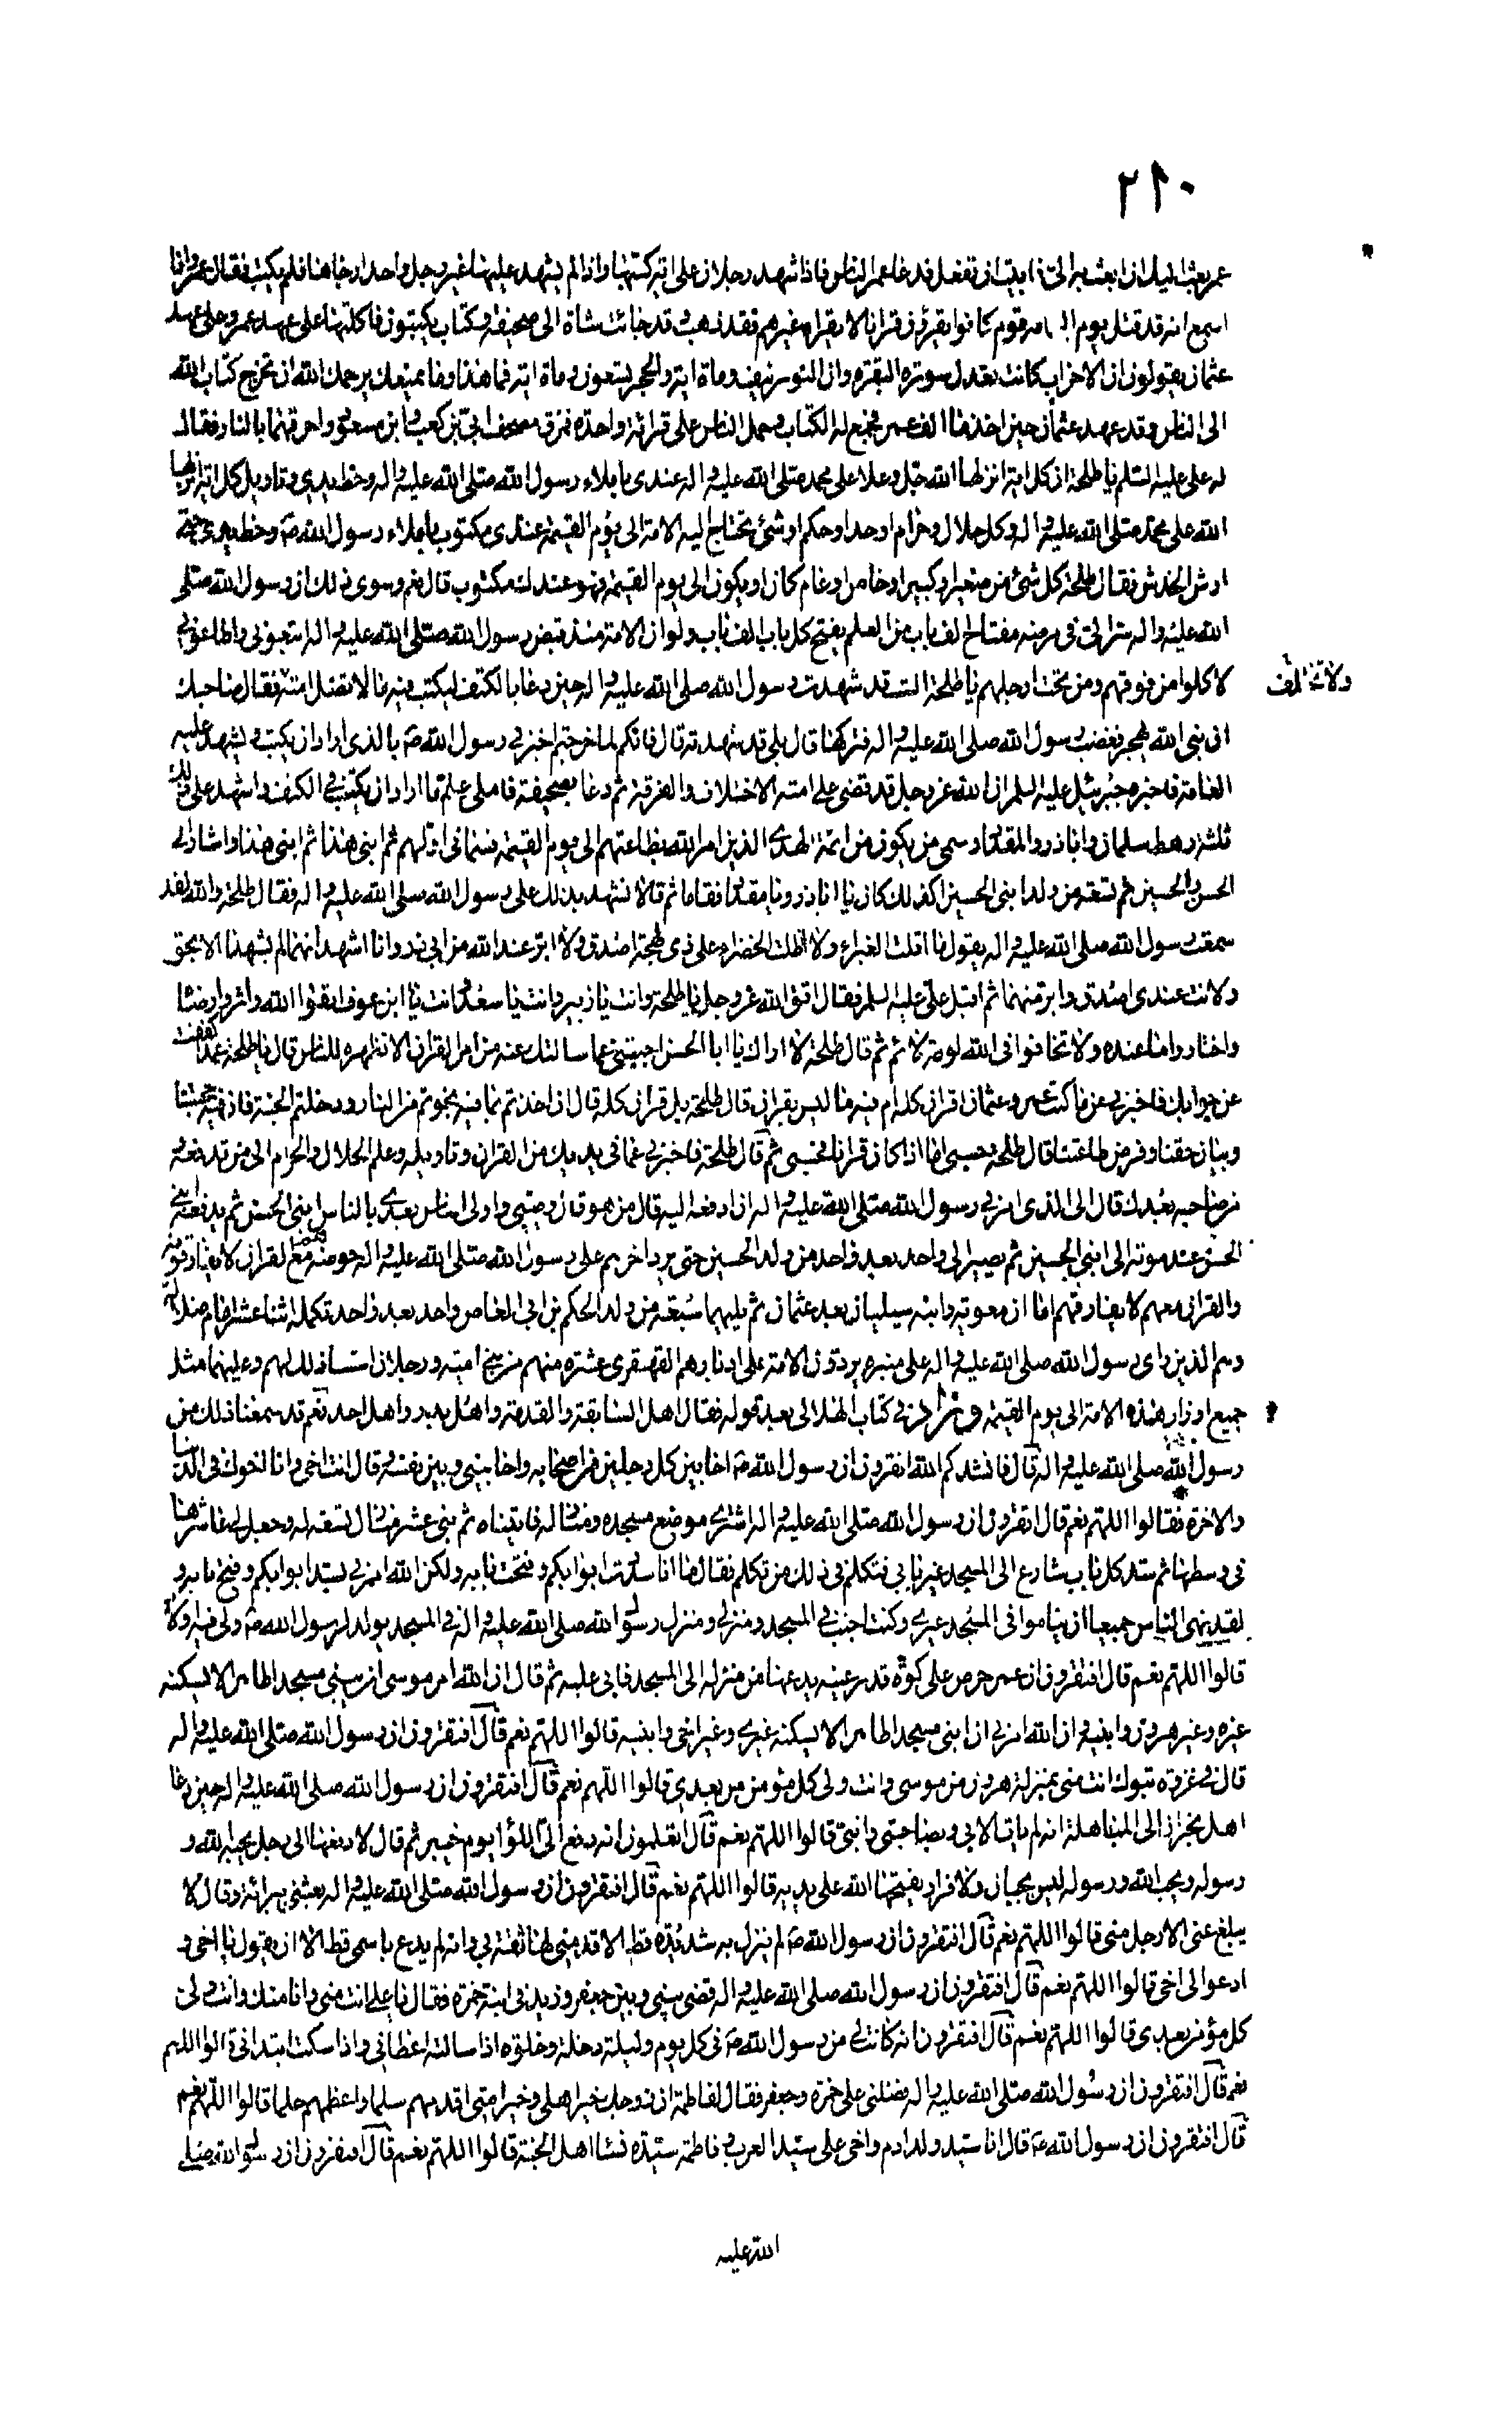 ٢١٠
عمر بعث اليك ان ابعث به الى فابيت ان تفعل فدعا عمر الناس فاذا شهد رجلان على اية كتبها واذا لم يشهد عليها غير رجل واحد ارجاها فلم يكتب فقال عمر وانا
اسمع انه قد قتل يوم قوم كانوا يقرؤن قرانا لا يقراه غيرهم فقد ذهب وقد جائت شاة الى صحيفة وكتاب يكتبون فاكلتها على عهد عمر وعلى عهد
عثمان يقولون ان الاحزاب كانت تعدل سورة البقرة وان النور نيف وماة اية والحجر تسعون وماة اية فما هذا وما يمنعك يرحمك الله ان تخرج كتاب الله
الى الناس وقد عهد عثمان حين اخذ ما الف عمر فجمع له الكتاب وحمل الناس على قرائة واحدة فمزق مصحف ابي بن كعب وابن مسعود واحرقهما بالنار فقال
له علي عليه السلم يا طلحة ان كل اية انزلها الله جل وعلا على محمد صلى الله عليه واله عندى باملاء رسول الله صلى الله عليه واله وخط يدي وتاويل كل اية انزلها
الله على محمد صلى الله عليه واله وكل حلال وحرام او حد او حكم او شئ تحتاج اليه الامة الى يوم القيمة عندى مكتوب باملاء رسول الله ص وخط يدى حتى
ارش الخدش فقال طلحة كل شئ من صغير او كبير او خاص او عام كان او يكون الى يوم القيمة فهو عندك مكتوب قال نعم وسوى ذلك ان رسول الله صلى
الله عليه واله سر الى فى مرضه مفتاح الف باب من العلم يفتح كل باب الف باب ولو ان الامة منذ قبض رسول الله صلى الله عليه واله اتبعونى واطاعونى
لاكلوا من فوقهم ومن تحت ارجلهم يا طلحة الست قد شهدت رسول الله صلى الله عليه واله حين دعا بالكتف ليكتب فيه ما لا تضل امته فقال صاحبك
ان نبي الله يهجر فغضب رسول الله صلى الله عليه واله فتركها قال بلى قد شهدته قال فانكم لما خرجتم اخبرني رسول الله ص بالذى اراد ان يكتب ويشهد عليه
العامة فاخبره جبرئيل عليه السلم ان الله عز وجل قد قضى على امته الاختلاف والفرقة ثم دعا بصحيفة فاملى علي ما اراد ان يكتب في الكتف واشهد على ذلك
ثلثة رهط سلمان وابا ذر والمقداد وسمى من يكون من ائمة الهدى الذين امر الله بطاعتهم الى يوم القيمة فسمانى اولهم ثم ابني هذا ثم ابني هذا واشار الى
الحسن والحسين ثم تسعة من ولد ابنى الحسين اكذلك كان يا ابا ذر ويا مقداد فقاما ثم قالا نشهد بذلك على رسول الله صلى الله عليه واله فقال طلحة والله لقد
سمعت رسول الله صلى الله عليه واله يقول ما اقلت الغبراء ولا اظلت الخضراء على ذى لهجة اصدق ولا ابر عند الله من ابي ذر وانا اشهد انهما لم يشهدا الا بحق
ولانت عندى اصدق وابر منهما ثم اقبل علي عليه السلم فقال اتق الله عز وجل يا طلحة وانت يا زبير وانت يا سعد وانت يا ابن عوف اتقوا الله واثروا رضا
واختاروا ما عنده ولا تخافوا فى الله لومة لائم ثم قال طلحة لا اراك يا ابا الحسن اجبتنى عما سالتك عنه من امر القران الا تظهره للناس قال يا طلحة عمدا كففت
عن جوابك فاخبرني عن ما كتب عمر وعثمان اقران كله ام فيه ما ليس بقران قال طلحة بل قران كله قال ان اخذتم بما فيه نجوتم من النار ودخلتم الجنة فان فيه حجتنا
وبيان حقنا وفرض طاعتنا قال طلحة حسبى اما اذا كان قرانا فحسبى ثم قال طلحة فاخبرني عما فى يديك من القران وتاويله وعلم الحلال والحرام الى من تدفعه
ومن صاحبه بعدك قال الى الذى امرني رسول الله صلى الله عليه واله ان ادفعه اليه قال من هو قال وصيي واولى الناس بعدي بالناس ابنى الحسن ثم يدفعه ابني
الحسن عند موته الى ابنى الحسين ثم يصير الى واحد بعد واحد من ولد الحسين حتى يرد اخرهم على رسول الله صلى الله عليه واله حوضه هم مع القران لا يفارقونه
والقران معهم لا يفارقهم اما ان معوية وابنه سيليان بعد عثمان ثم يليهما سبعة من ولد الحكم بن ابي العاص واحد بعد واحد تكملة اثنا عشر امام ضلالة
وهم الذين راى رسول الله صلى الله عليه واله على منبره يردون الامة على ادبارهم القهقرى عشرة منهم من بني امية ورجلان اسسا ذلك لهم وعليهما مثل
جميع اوزار هذه الامة الى يوم القيمة وزاد في كتاب الهلالى بعد قوله فقال اهل السابقة والقدمة واهل بدر واهل احد نعم قد سمعنا ذلك من
رسول الله صلى الله عليه واله قال فانشدكم الله اتقرون ان رسول الله ص اخا بين كل رجلين من اصحابه واخا بينى وبين نفسه وقال انت اخى وانا اخوك فى الدنيا
والاخرة فقالوا اللهم نعم قال اتقرون ان رسول الله صلى الله عليه واله اشترى موضع مسجده ومنازله فابتناه ثم بنى عشر منازل تسعة له وجعل لي عاشرها
فى وسطها ثم سد كل باب شارع الى المسجد غير بابي فتكلم فى ذلك من تكلم فقال ما انا سددت ابوابكم وفتحت بابه ولكن الله امرني بسد ابوابكم وفتح بابه و
لقد نهى الناس جميعا ان يناموا فى المسجد غيري وكنت اجنب في المسجد ومنزلي ومنزل رسول الله صلى الله عليه واله في المسجد يولد لرسول الله ص ولى فيه اولاد
قالوا اللهم نعم قال افتقرون ان عمر حرص على كوة قدر عينيه يدعها من منزله الى المسجد فابى عليه ثم قال ان الله امر موسى ان يبنى مسجدا طاهرا لا يسكنه
غيره وغير هرون وابنيه وان الله امرني ان ابنى مسجدا طاهرا لا يسكنه غيري وغير اخى وابنيه قالوا اللهم نعم قال افتقرون ان رسول الله صلى الله عليه واله
قال في غزوة تبوك انت منى بمنزلة هرون من موسى وانت ولى كل مؤمن من بعدي قالوا اللهم نعم قال افتقرون ان رسول الله صلى الله عليه واله حين دعا
اهل نجران الى المباهلة انه لم يات الا بي وبصاحبتى وابني قالوا اللهم نعم قال اتعلمون انه دفع الى اللواء يوم خيبر ثم قال لادفعنها الى رجل يحبه الله و
رسوله ويحب الله ورسوله ليس بجبان ولا فرار يفتحها الله على يديه قالوا اللهم نعم قال افتقرون ان رسول الله صلى الله عليه واله بعثني ببرائة وقال لا
يبلغ عنى الا رجل منى قالوا اللهم نعم قال افتقرون ان رسول الله ص لم ينزل به شديدة قط الا قدمنى لها ثقة بي وانه لم يدع باسمى قط الا ان يقول يا اخى و
ادعوا لى اخى قالوا اللهم نعم قال افتقرون ان رسول الله صلى الله عليه واله قضى بينى وبين جعفر وزيد فى ابنة حمزة فقال يا علي انت منى وانا منك وانت ولى
كل مؤمن بعدى قالوا اللهم نعم قال افتقرون انه كانت لي من رسول الله ص فى كل يوم وليلة دخلة وخلوة اذا سالته اعطانى واذا سكت ابتدانى قالوا اللهم
نعم قال افتقرون ان رسول الله صلى الله عليه واله فضلنى على حمزة وجعفر فقال لفاطمة ان زوجك خير اهلى وخير امتى اقدمهم سلما واعظمهم حلما قالوا اللهم نعم
قال افتقرون ان رسول الله ص قال انا سيد ولد ادم واخى على سيد العرب وفاطمة سيدة نساء اهل الجنة قالوا اللهم نعم قال افتقرون ان رسول الله صلى
ولا تتخالف
الله عليه